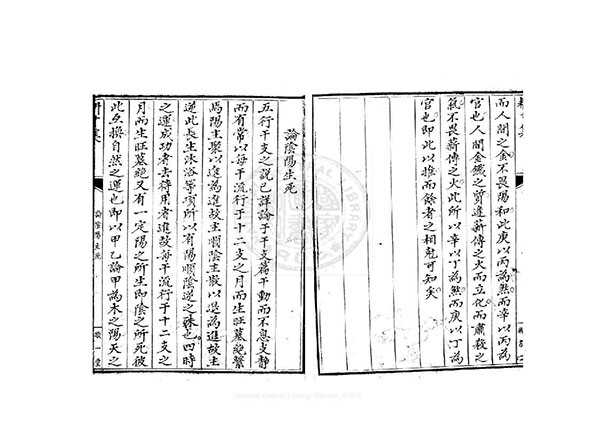 而人間之金不畏陽和此庚以丙為煞而辛以丙為
官也人間金鐵之質逢薪傳之火而立化而肅殺之
氣不畏薪傳之火此所以辛以丁為煞而庚以丁為
官也即此以推而餘者之相尅可知矣
論陰陽生死
五行干支之說已詳論于干支篇干動而不息支靜
而有常以每干流行于十二支之月而生旺墓絕繫
焉陽主聚以進為進故主順陰主散以退為進故主
逆此長生沐浴等項所以有陽順陰逆之殊也四時
之運成功者去待用者進故每干流行于十二支之
月而生旺墓絕又有一定陽之所生即陰之所死彼
此互換自然之運也即以甲乙論甲為木之陽天之
論陰陽生死